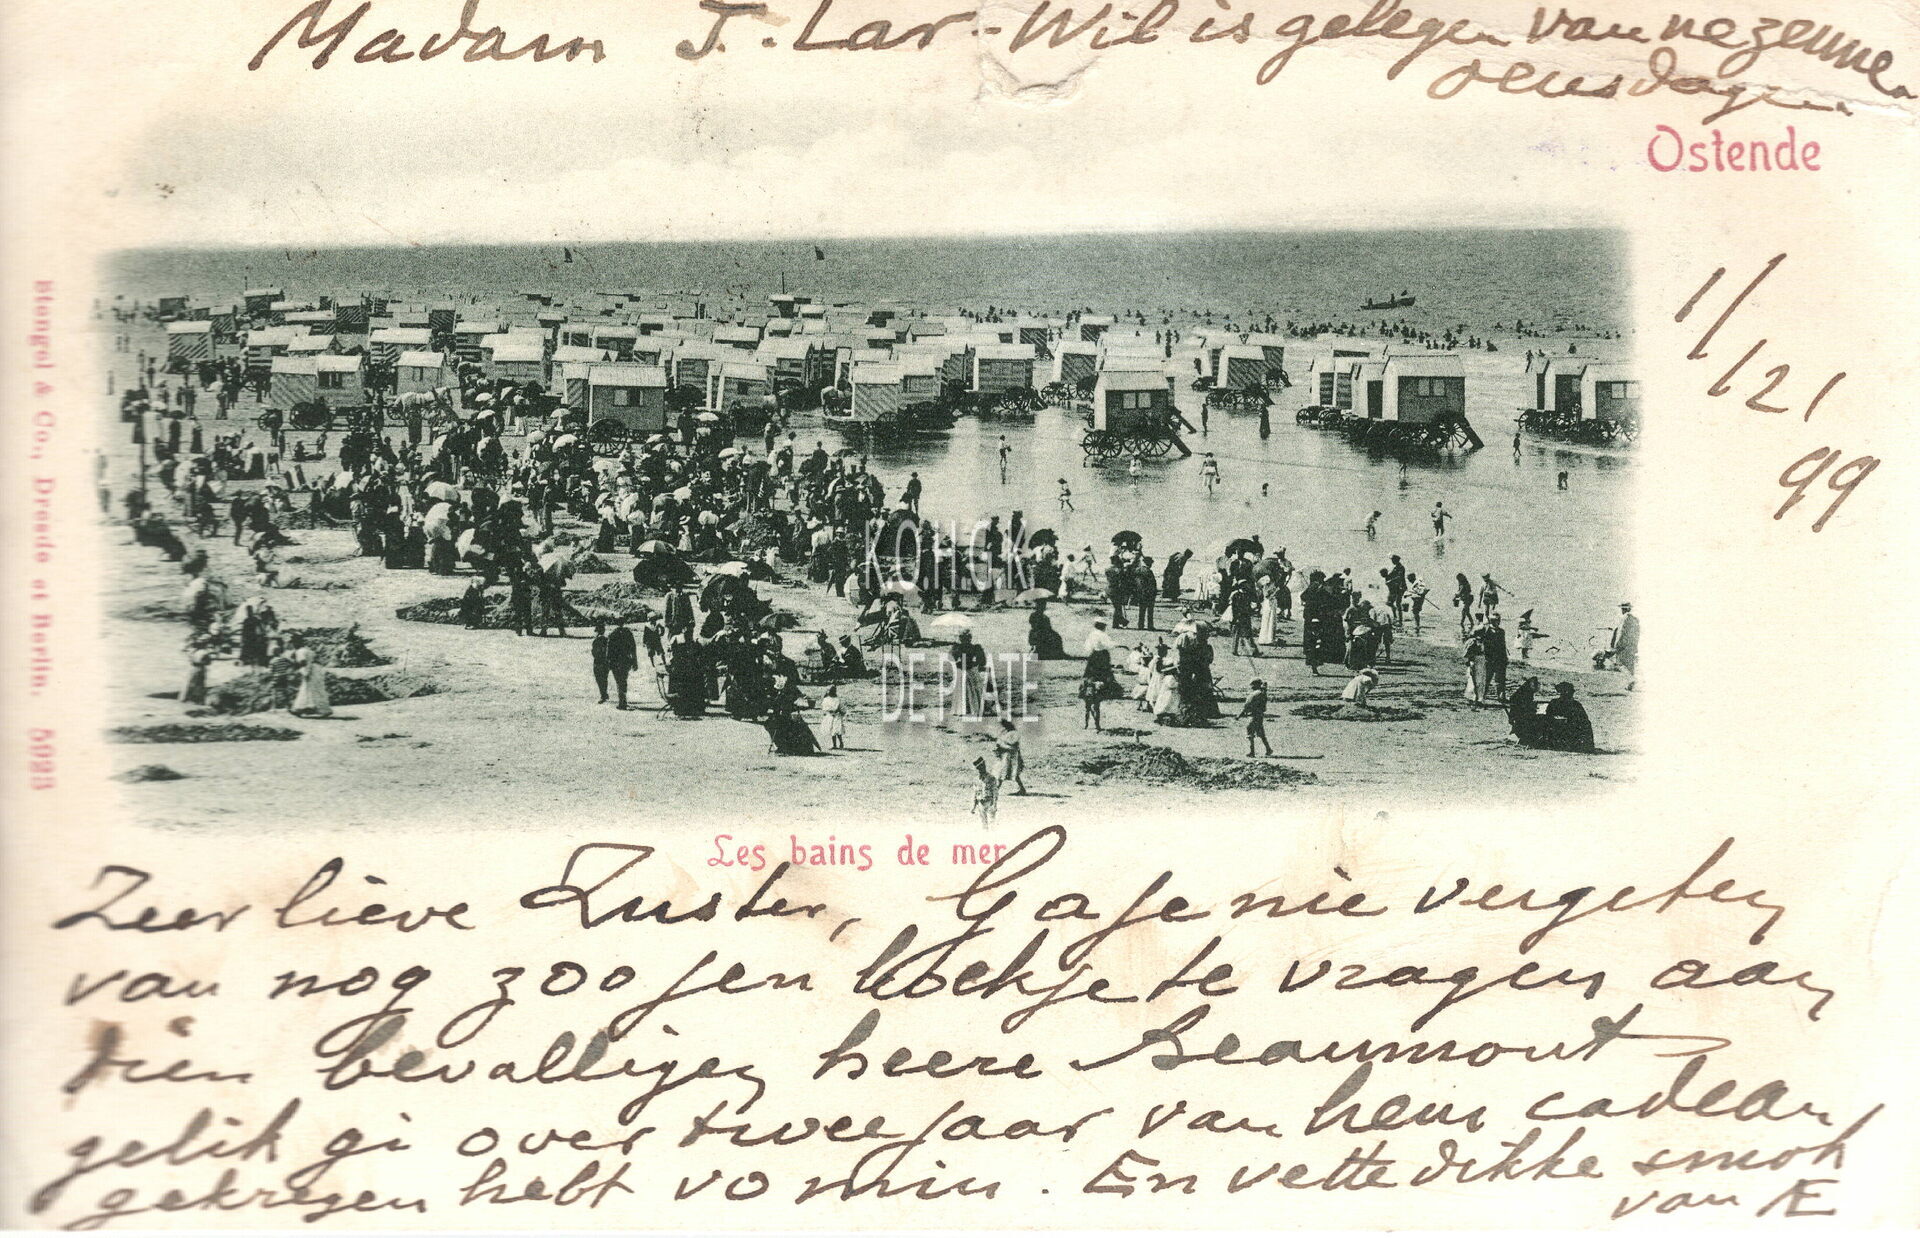 Madam J. Lar - Wil is gelegen van nazenne
oensdagen
Ostende
1/12/99
Stengel & Co., Dresde et Berlin. 5923
K.O.H.G.K.
DE PLATE
Les bains de mer
Zeer lieve Zuster, Ga je nie vergeten
van nog zoo jen boekje te vragen aan
dien bevalligen heere Beaumont
gelik gi over twee jaar van hem cadeau
gekregen hebt vo min. En vette dikke smok
van Æ